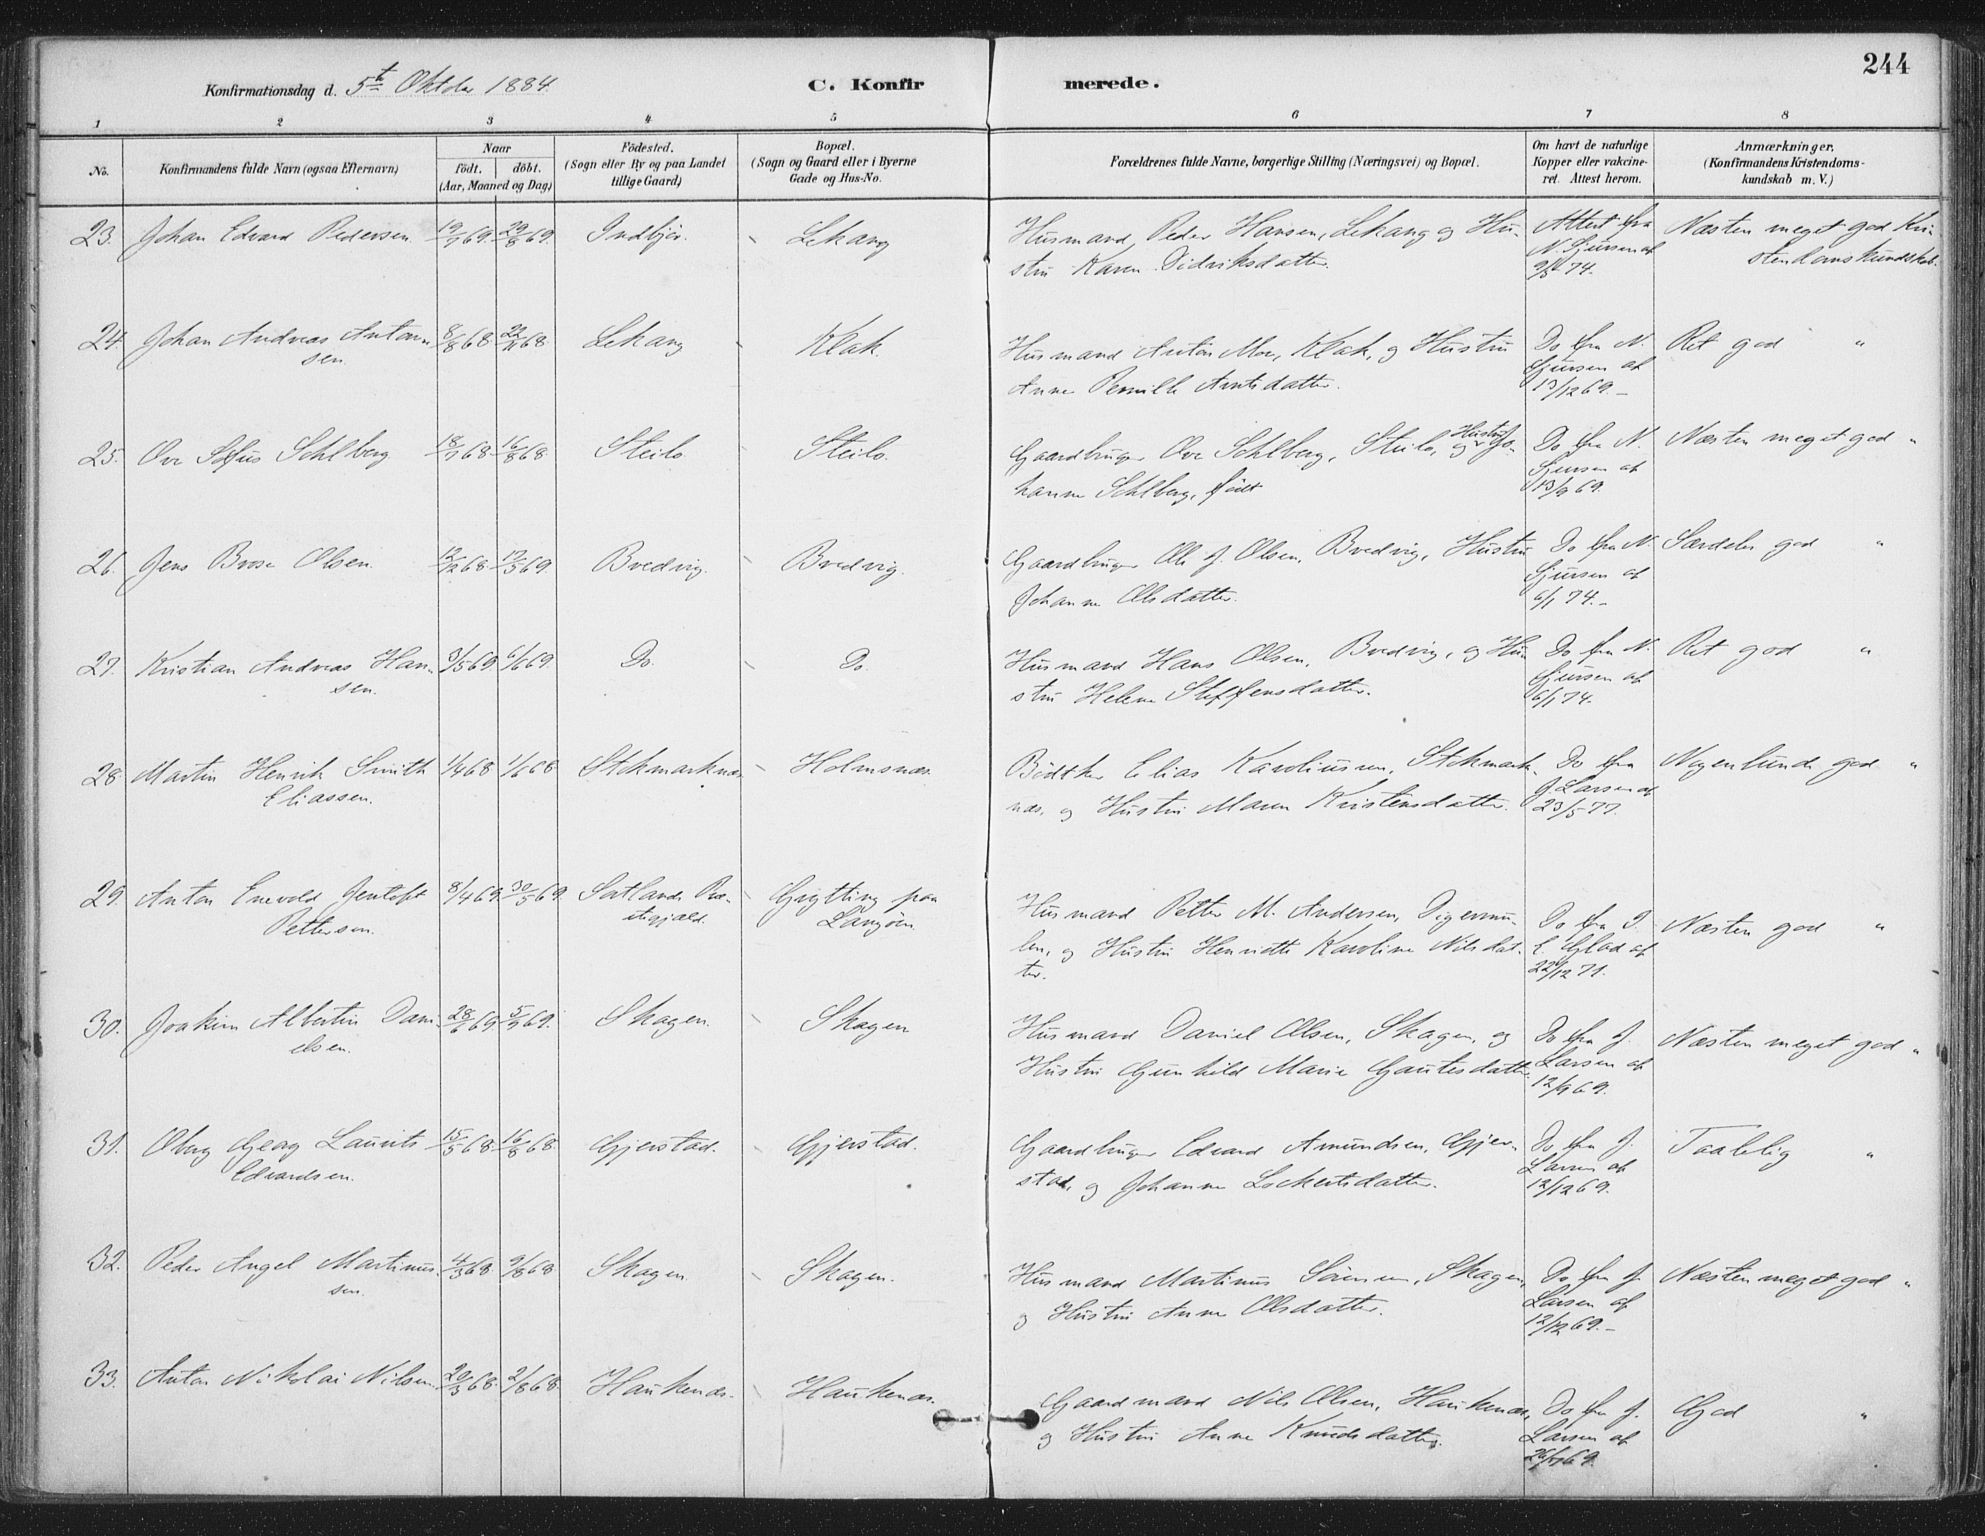 244
Konfirmationsdag d. 5te Oktober 1884.
C. Konfirmerede.
1 2 3 4 5 6 7 8
No.
Konfirmandens fulde Navn (ogsaa Efternavn)
Naar
födt. döbt.
(Aar, Maaned og Dag)
Födested.
(Sogn eller By og paa Landet
tillige Gaard)
Bopæl.
(Sogn og Gaard eller i Byerne
Gade og Hus-No.
Forældrenes fulde Navne, borgerlige Stilling (Næringsvei) og Bopæl.
Om havt de naturlige
Kopper eller vakcine-
ret. Attest herom.
Anmærkninger.
(Konfirmandens Kristendoms-
kundskab m. V.)
23. Johan Edvard Pedersen. 19/7 69. 29/8 69. Indbjör. Lekang Husmand Peder Hansen, Lekang og Hu- Attest fra Næsten meget god Kri-
stru Karen Didriksdatter. N. Sjursen af stendomskundskab.
9/5 74.
24. Johan Andreas Anton- 8/8 68. 22/11 68 Lekang Klak. Husmand Anton Moe, Klak, og Hustru Do fra N. Ret god "
sen. Anne Pernille Arntsdatter. Sjursen af
13/12 69.
25. Ove Sofus Sehlberg 18/7 68. 16/8 68 Steilo Steilo. Gaardbruger Ove Sehlberg, Steilo, og Hustru Jo- Do fra N. Næsten meget god "
hanne Sehlberg, födt Sjursen af
13/9 69.
26. Jens Brose Olsen. 12/12 68. 17/5 69. Bredvig. Bredvig. Gaardbruger Ole J. Olsen, Bredvig, Hustru Do fra N. Særdeles god "
Johanne Olsdatter. Sjursen af
6/1 74.
27. Kristian Andreas Han- 3/5 69 6/6 69. Do. Do. Husmand Hans Olsen, Bredvig, og Hu- Do fra N. Ret god "
sen. stru Helene Steffensdatter. Sjursen af
6/1 74.
28. Martin Henrik Smith 1/4 68 1/6 68 Stokmarknæs Holmsnæs. Bödtker Elias Karoliussen, Stokmark- Do fra Nogenlunde god "
Eliassen. næs, og Hustru Maren Kristensdatter. J. Larsen af
23/5 77.
29. Anton Enevold Jentoft 8/4 69. 30/5 69. Satlands Præ- Grytting paa Husmand Petter M. Andersen, Digermu- Do fra Næsten god "
Pettersen. stegjæld. Langöen. len, og Hustru Henriette Karoline Nilsdat- E Uglad af
ter. 22/12 71.
30. Joakim Albertin Dani- 28/6 69 5/9 69. Skagen. Skagen Husmand Daniel Olsen, Skagen, og Do fra J. Næsten meget god "
elsen. Hustru Gunhild Marie Gautesdatter. Larsen af
12/9 69.
31. Oberg Georg Laurits 15/5 68. 16/8 68 Gjerstad. Gjerstad. Gaardbruger Edvard Amundsen, Gjer- Do fra J. Taalelig "
Edvardsen. stad, og Johanne Lockertsdatter. Larsen af
12/12 69.
32. Peder Angel Martinus- 4/3 68 9/8 68 Skagen Skagen. Husmand Martinus Sörensen, Skagen, Do fra J. Næsten meget god "
sen. og Hustru Anne Olsdatter. Larsen af
12/12 69.
33. Anton Nikolai Nilsen. 20/3 68. 2/8 68 Haukenæs. Haukenæs. Gaardmand Nils Olsen, Haukenæs, Do fra J. God "
og Hustru Anne Knudsdatter. Larsen af
26/9 69.